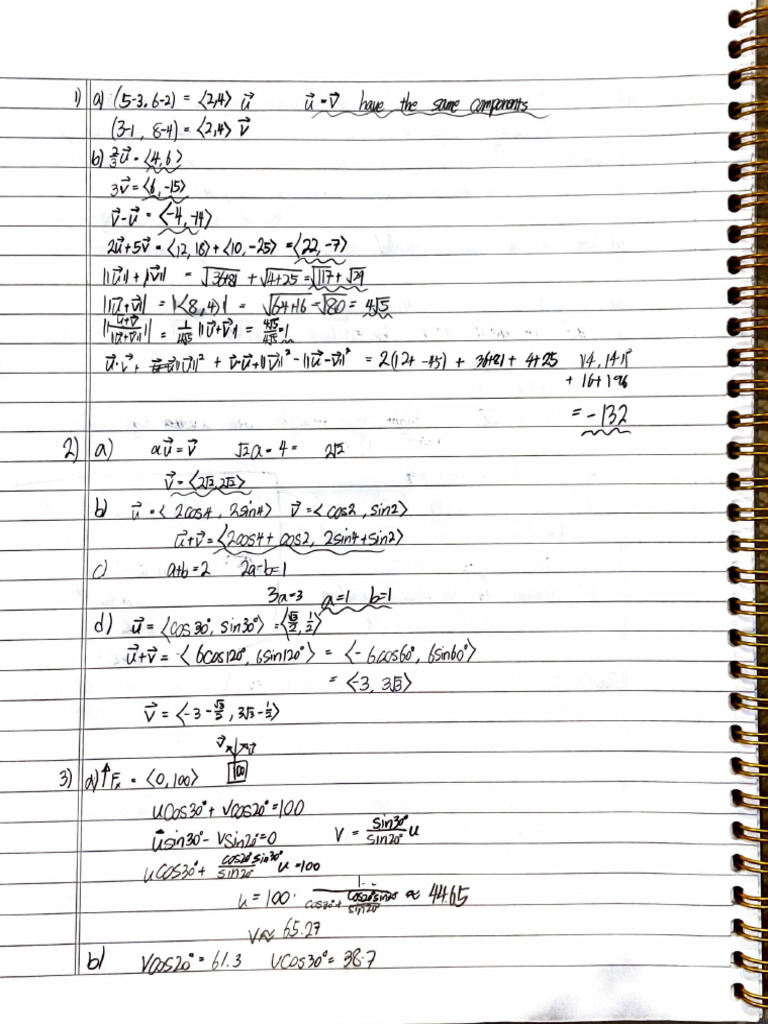 1) a) (5-3, 6-2) = ⟨2,4⟩ u⃗ u⃗ = v⃗ have the same components
(3-1, 8-4) = ⟨2,4⟩ v⃗
b) 2/3 u⃗ = ⟨4,6⟩
3v⃗ = ⟨6,-15⟩
v⃗-u⃗ = ⟨-4,-14⟩
2u⃗+5v⃗ = ⟨12,18⟩+⟨10,-25⟩ = ⟨22,-7⟩
||u⃗|| + ||v⃗|| = √36+81 + √4+25 = √117 + √29
||u⃗+v⃗|| = |⟨8,4⟩| = √64+16 = √80 = 4√5
||u⃗+v⃗/||u⃗+v⃗|| || = 1/4√5 ||u⃗+v⃗|| = 4√5/4√5 = 1
u⃗·v⃗ + ||u⃗||² + v⃗·u⃗+||v⃗||² - ||u⃗-v⃗||² = 2(12+ -45) + 36+81 + 4+25
+ 16+196
= -132
2) a) au⃗ = v⃗ √2a = 4 = 2√2
v⃗ = ⟨2√2, 2√2⟩
b) u⃗ = ⟨2cos4, 2sin4⟩ v⃗ = ⟨cos2, sin2⟩
u⃗+v⃗ = ⟨2cos4 + cos2, 2sin4+sin2⟩
c) a+b=2 2a-b=1
3a=3 a=1 b=1
d) u⃗ = ⟨cos30°, sin30°⟩ = ⟨√3/2, 1/2⟩
u⃗+v⃗ = ⟨6cos120°, 6sin120°⟩ = ⟨-6cos60°, 6sin60°⟩
= ⟨-3, 3√3⟩
v⃗ = ⟨-3-√3/2, 3√3-1/2⟩
v⃗ u⃗
3) a) ↑Fx = ⟨0,100⟩ 100
ucos30° + vcos20° = 100
usin30° - vsin20° = 0 v = sin30°/sin20° u
ucos30° + cos20°sin30°/sin20° u = 100
u = 100 · 1/cos30°+cos20°sin30°/sin20° ≈ 44.65
v ≈ 65.27
b) vcos20° = 61.3 ucos30° = 38.7